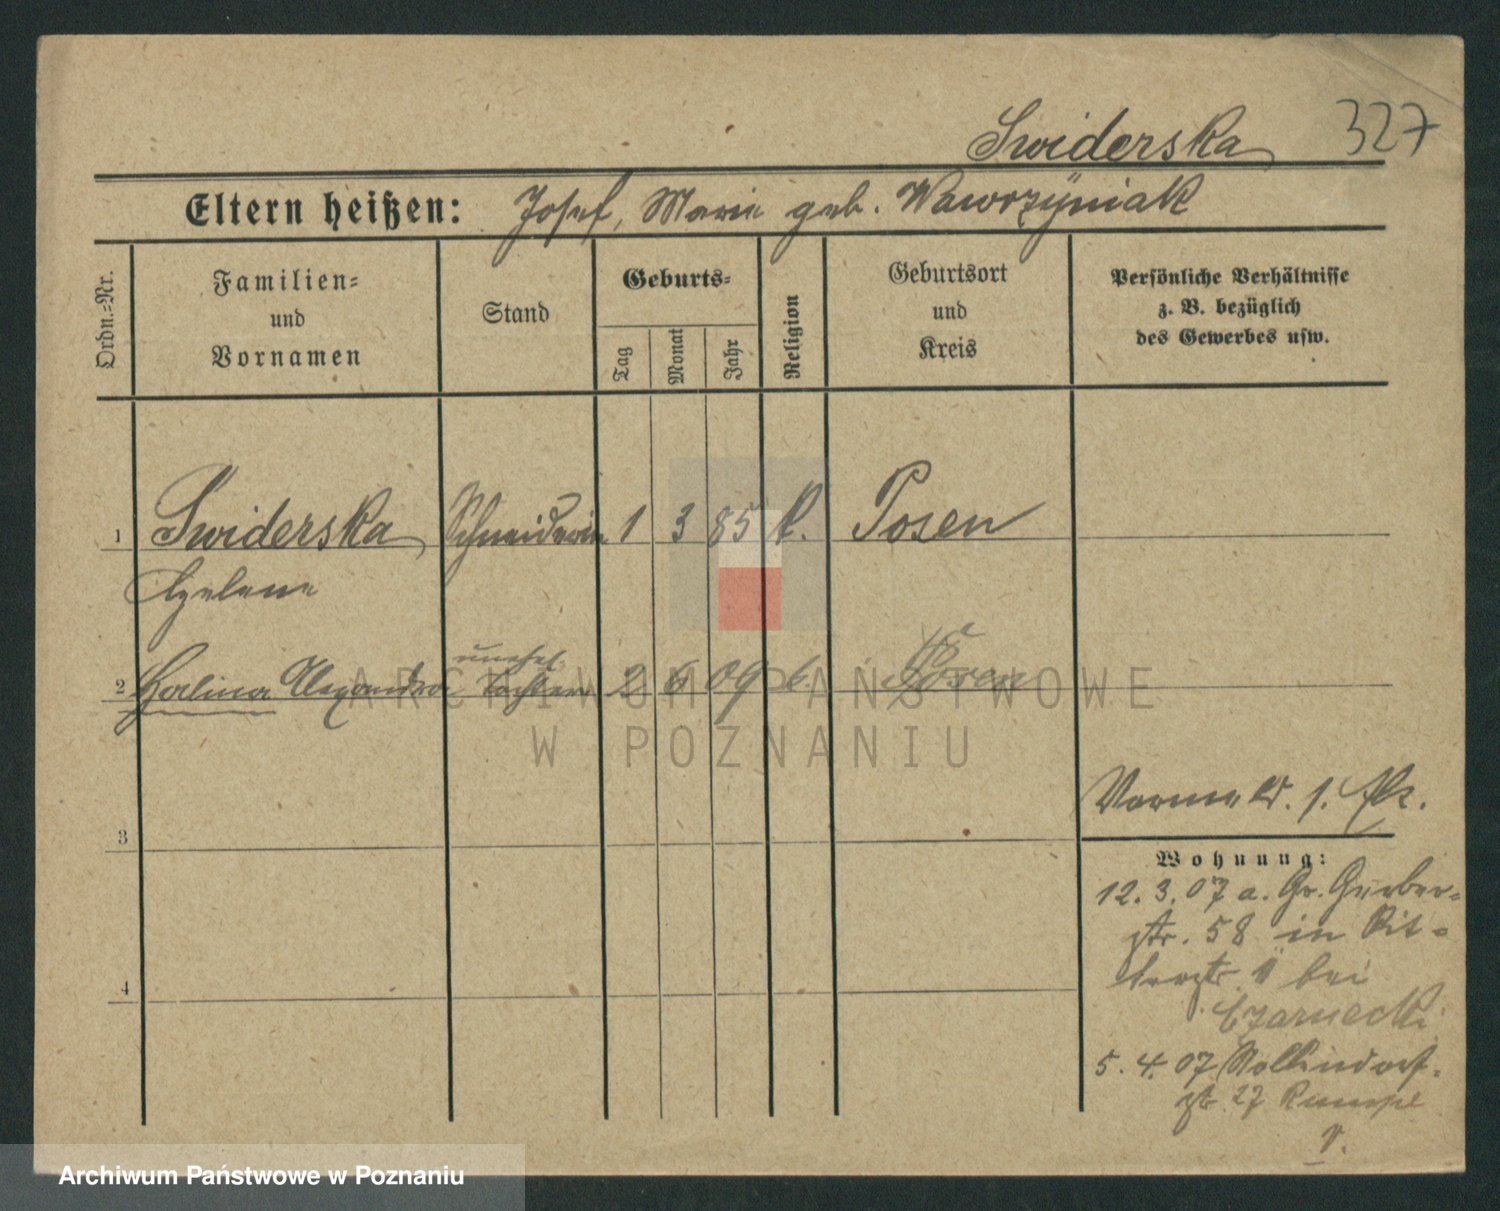 Swiderska 327
Eltern heißen: Josef, Marie geb. Wawrzÿniak
Ordn.=Nr.
Familien=
und
Vornamen
Stand
Geburts=
Tag
Monat
Jahr
Religion
Geburtsort
und
Kreis
Persönliche Verhältnisse
z. B. bezüglich
des Gewerbes usw.
1 Swiderska Schneiderin 1 3 85 k. Posen
Helene
unehel.
2 Halina Alexandra Tochter 2 6 09 k. Posen
ARCHIWUM PAŃSTWOWE
W POZNANIU
3
4
Wohnung:
12. 3. 07 a. Gr. Gerber=
str. 58 in Rit=
terstr. bei
Czarnecki
5. 4. 07 Nollendorf=
str. 27 Rumpe
v.
Archiwum Państwowe w Poznaniu